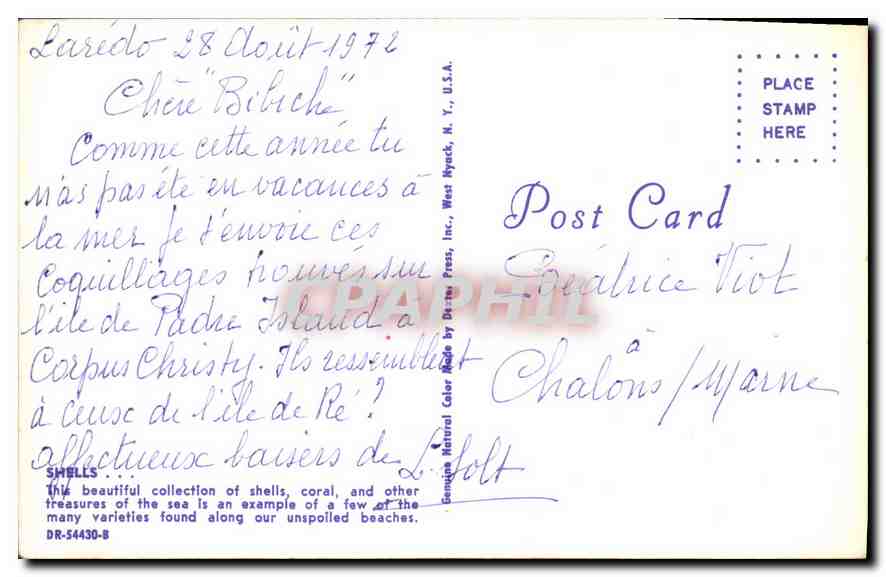 Larédo 28 Août 1972
Chère "Bibiche"
Comme cette année tu
n'as pas été en vacances à
la mer je t'envoie ces
coquillages trouvés sur
l'île de Padre Island à
Corpus Christy. Ils ressemblent
à ceux de l'île de Ré?
affectueux baisers de L.
SHELLS ...
This beautiful collection of shells, coral, and other
treasures of the sea is an example of a few of the
many varieties found along our unspoiled beaches.
DR-54430-B
Genuine Natural Color Made by Dexter Press, Inc., West Nyack, N. Y., U.S.A.
PLACE
STAMP
HERE
Post Card
Béatrice Viot
à
Chalons/Marne
CPAPHIL